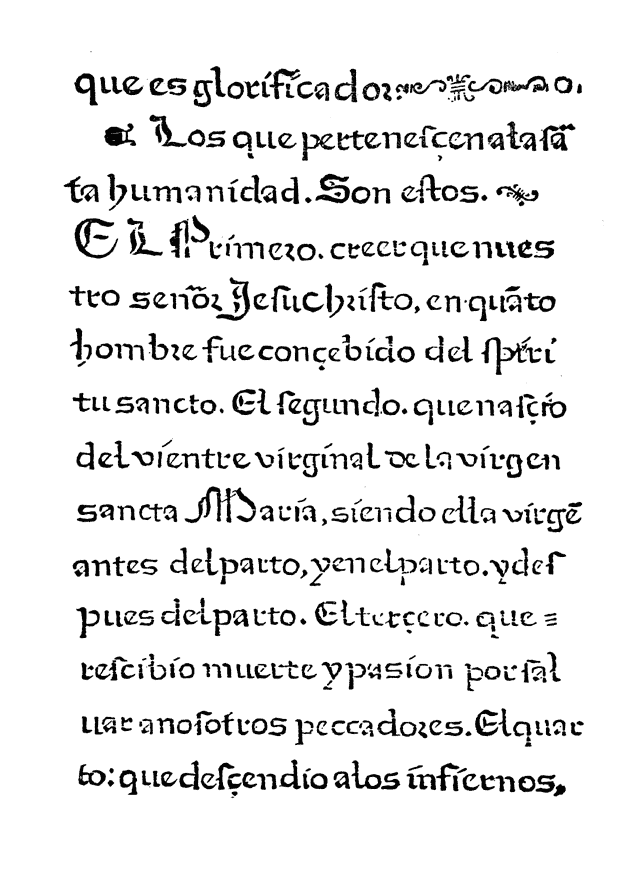 que es glorificador.
Los que pertenesçen a la sā
ta humanidad. Son estos.
EL Primero. creer que nues
tro señōr Jesuchristo, en quāto
hombre fue conçebido del spiri
tu sancto. El segundo. que nasçio
del vientre virginal de la virgen
sancta Maria, siendo ella virgē
antes del parto, y en el parto. y des
pues del parto. El terçero. que =
rescibio muerte y pasion por sal
uar a nosotros peccadores. El quar
to: que desçendio a los infiernos,